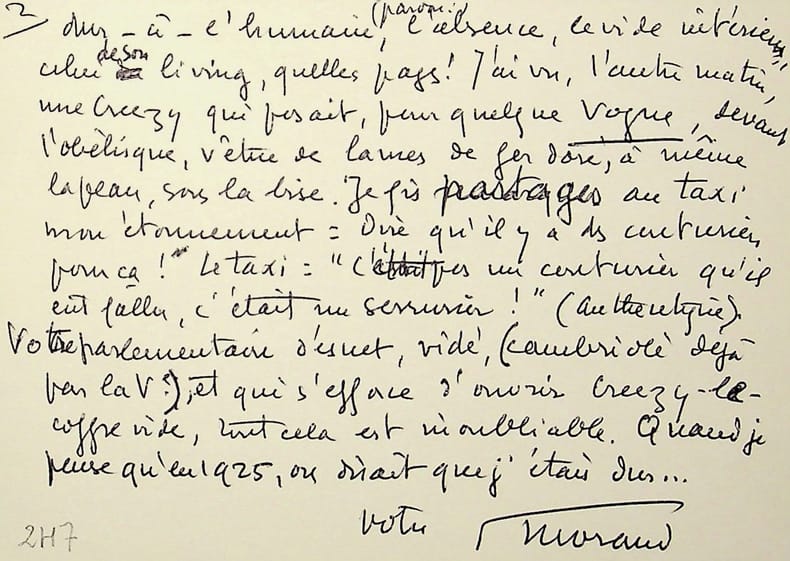 2
dur-à-l'humain, (paroi) l'absence, le vide intérieur,
celui de son living, quelles pages! J'ai vu, l'autre matin,
une Creezy qui posait, pour quelque Vogue, devant
l'obélisque, vêtue de lames de fer doré, à même
la peau, sous la bise. Je fis partager au taxi
mon étonnement = Dire qu'il y a ds couturiers
pour ça!" Le taxi = "C'était pas un couturier qu'il
eut fallu, c'était un serrurier!" (authentique).
Votre parlementaire désuet, vidé, (cambriolé déjà
par la Vᵉ), et qui s'efforce d'ouvrir Creezy-le-
coffre vide, tout cela est inoubliable. Quand je
pense qu'en 1925, on disait que j'étais dur...
Votre Morand
2H7